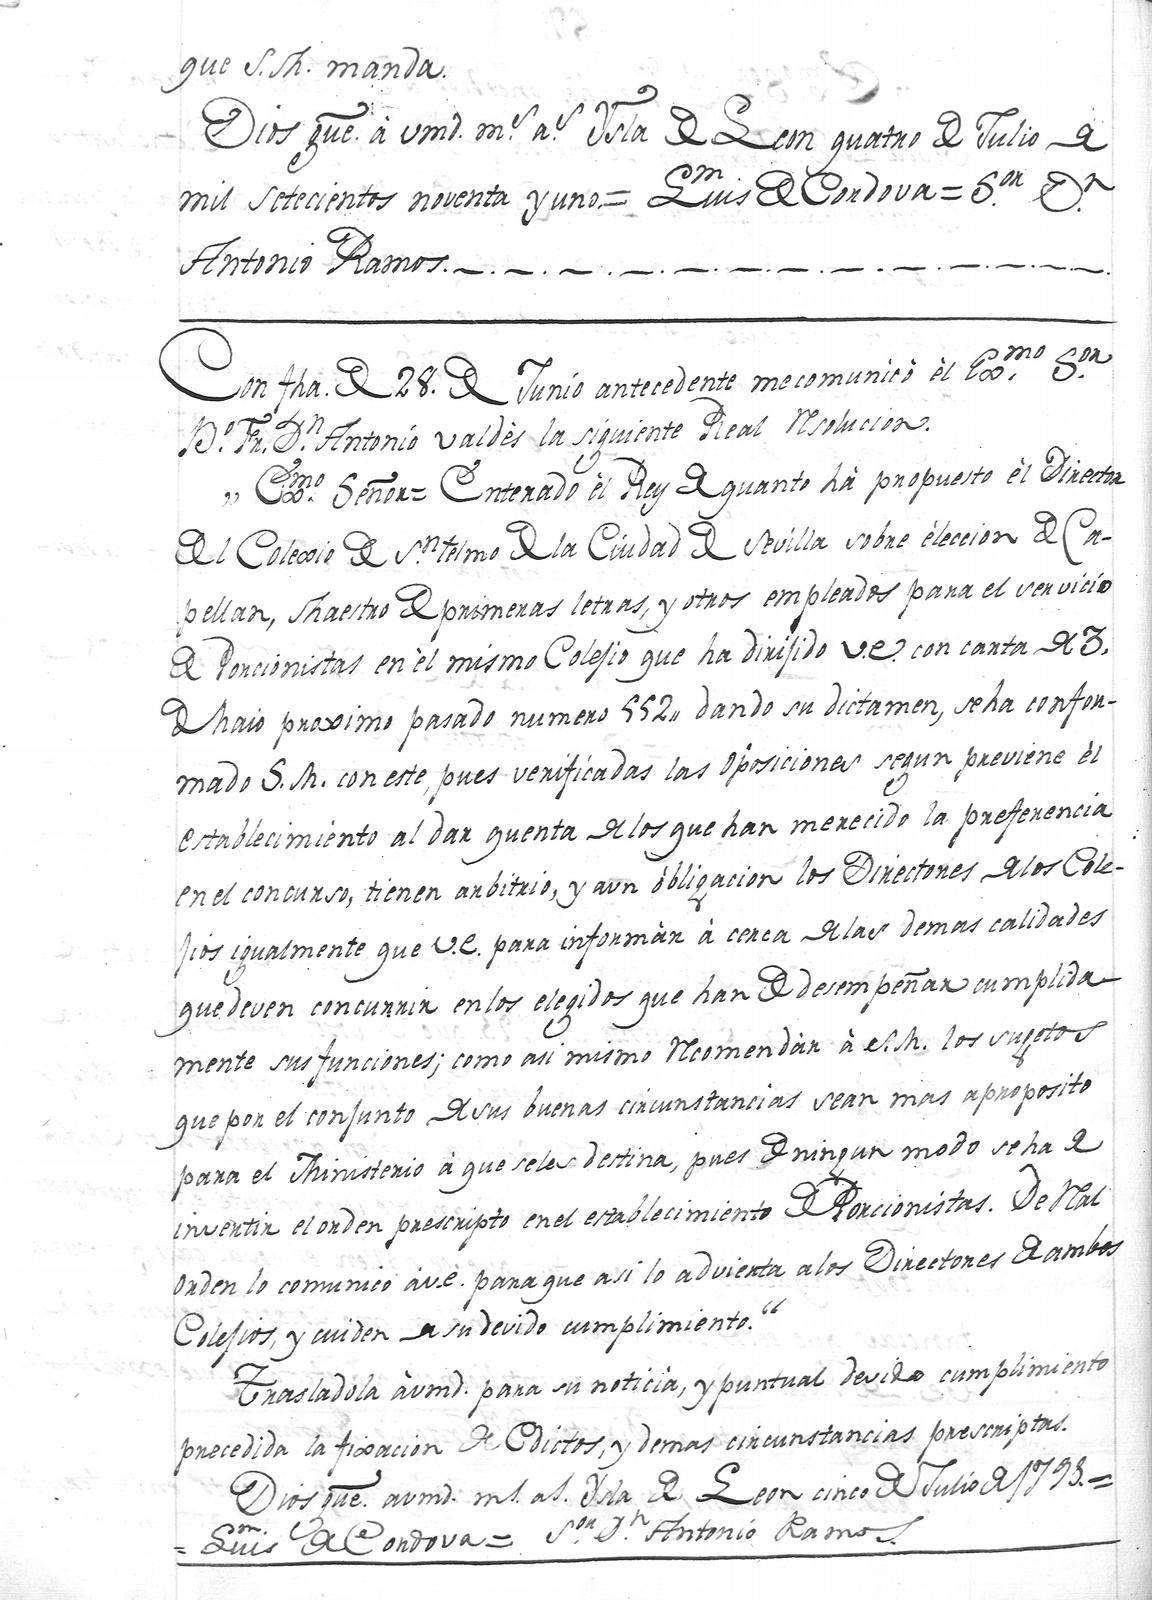 que S. M. manda.
Dios gue. à vmd. ms. as. Ysla de Leon quatro de Julio de
mil setecientos noventa y uno = Luis de Cordova = Sor. Dn.
Antonio Ramos.
Con fha. de 28. de Junio antecedente me comunicò èl Exmo. Sor.
Bo. Fr. Dn. Antonio Valdès la siguiente Real Resolucion.
„ Exmo. Señor = Enterado èl Rey de quanto hà propuesto èl Director
del Colexio de Sn. telmo de la Ciudad de Sevilla sobre èleccion de Ca-
pellan, Maestro de primeras letras, y otros empleados para el servicio
de Porcionistas en èl mismo Colejio que ha dirijido V.E. con carta de 3.
de Maio proximo pasado numero 552„ dando su dictamen, se ha confor-
mado S. M. con este, pues verificadas las òposiciones segun previene èl
establecimiento al dar quenta de los que han merecido la preferencia
en el concurso, tienen arbitrio, y aun òbligacion los Directores de los Cole-
jios igualmente que V.E. para informàr à cerca de las demas calidades
que deven concurrir en los elegidos que han de desempeñar cumplida-
mente sus funciones; como asi mismo recomendàr à S. M. los sugetos
que por el conjunto de sus buenas circunstancias sean mas aproposito
para el Ministerio à que seles destina, pues de ningun modo se ha de
invertir el orden prescripto en el establecimiento de Porcionistas. De Real
orden lo comunico à V.E. para que asi lo advierta a los Directores de ambos
Colejios, y cuiden de su devido cumplimiento."
Trasladola à vmd. para su noticia, y puntual devido cumplimiento
precedida la fixacion de Edictos, y demas circunstancias prescriptas.
Dios gue. a vmd. ms. as. Ysla de Leon cinco de Julio de 1793. =
= Luis de Cordova = Sor. Dn. Antonio Ramos.